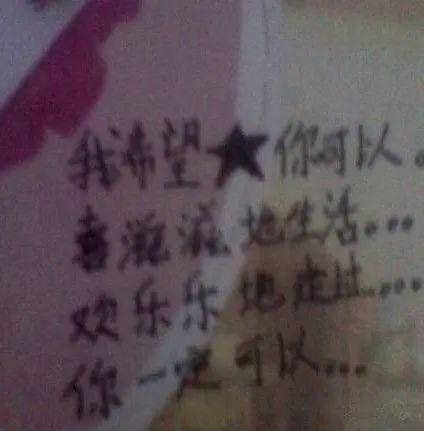 我希望★你可以。
喜滋滋地生活...
欢乐乐地走过...
你一定可以...